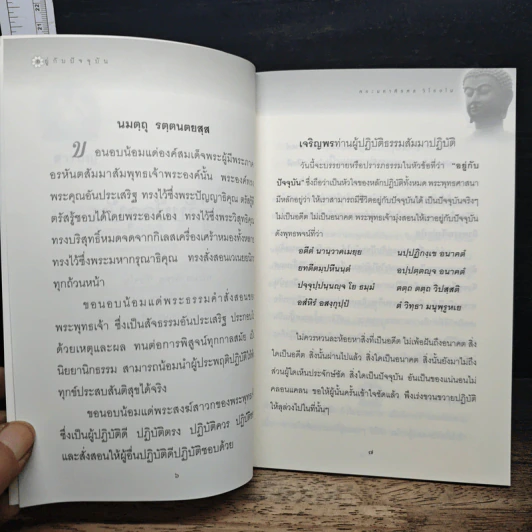 อยู่กับปัจจุบัน
นมตฺถุ รตฺตนตยสฺส
ขอนอบน้อมแด่องค์สมเด็จพระผู้มีพระภาค
อรหันตสัมมาสัมพุทธเจ้าพระองค์นั้น พระองค์ทรง
พระคุณอันประเสริฐ ทรงไว้ซึ่งพระปัญญาธิคุณ ตรัสรู้
ตรัสรู้ชอบได้โดยพระองค์เอง ทรงไว้ซึ่งพระวิสุทธิคุณ
ทรงบริสุทธิ์หมดจดจากกิเลสเครื่องเศร้าหมองทั้งหลาย
ทรงไว้ซึ่งพระมหากรุณาธิคุณ ทรงสั่งสอนเวไนยนิกร
ทุกถ้วนหน้า
ขอนอบน้อมแด่พระธรรมคำสั่งสอนของ
พระพุทธเจ้า ซึ่งเป็นสัจธรรมอันประเสริฐ ประกอบ
ด้วยเหตุและผล ทนต่อการพิสูจน์ทุกกาลสมัย เป็น
นิยยานิกธรรม สามารถน้อมนำผู้ประพฤติปฏิบัติให้พ้น
ทุกข์ประสบสันติสุขได้จริง
ขอนอบน้อมแด่พระสงฆ์สาวกของพระพุทธเจ้า
ซึ่งเป็นผู้ปฏิบัติดี ปฏิบัติตรง ปฏิบัติควร ปฏิบัติชอบ
และสั่งสอนให้ผู้อื่นปฏิบัติดีปฏิบัติชอบด้วย
๖
เจริญพรท่านผู้ปฏิบัติธรรมสัมมาปฏิบัติ
วันนี้จะบรรยายหรือปรารภธรรมในหัวข้อที่ว่า "อยู่กับ
ปัจจุบัน" ซึ่งถือว่าเป็นหัวใจของหลักปฏิบัติทั้งหมด พระพุทธศาสนา
มีหลักอยู่ว่า ให้เราสามารถมีชีวิตอยู่กับปัจจุบันได้ เป็นปัจจุบันจริงๆ
ไม่เป็นอดีต ไม่เป็นอนาคต พระพุทธเจ้ามุ่งสอนให้เราอยู่กับปัจจุบัน
ดังพุทธพจน์ที่ว่า
อตีตํ นานฺวาคเมยฺย นปฺปฏิกงฺเข อนาคตํ
ยทตีตมฺปหีนนฺตํ อปฺปตฺตญฺจ อนาคตํ
ปจฺจุปฺปนฺนญฺจ โย ธมฺมํ ตตฺถ ตตฺถ วิปสฺสติ
อสํหิรํ อสงฺกุปฺปํ ตํ วิทฺธา มนุพฺรูหเย
ไม่ควรหวนละห้อยหาสิ่งที่เป็นอดีต ไม่เพ้อฝันถึงอนาคต สิ่ง
ใดเป็นอดีต สิ่งนั้นผ่านไปแล้ว สิ่งใดเป็นอนาคต สิ่งนั้นยังมาไม่ถึง
ส่วนผู้ใดเห็นประจักษ์ชัด สิ่งใดเป็นปัจจุบัน อันเป็นของแน่นอนไม่
คลอนแคลน ขอให้ผู้นั้นครั้นเข้าใจชัดแล้ว พึงเร่งขวนขวายปฏิบัติ
ให้ลุล่วงไปในที่นั้นๆ
๗